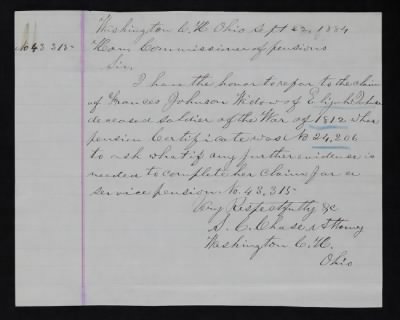 Washington C.H. Ohio Sept 22, 1884
No 43.315-
Hon Commissioner of pensions
Sir.
I have the honor to refer to the claim
of Frances Johnson Widow of Elijah
deceased soldier of the War of 1812 Her
pension Certificate was No 24,206
to ask what if any further evidence is
needed to complete her claim for a
service pension No. 43,315-
Very Respectfully &c
S. C. Chase Attorney
Washington C.H.
Ohio